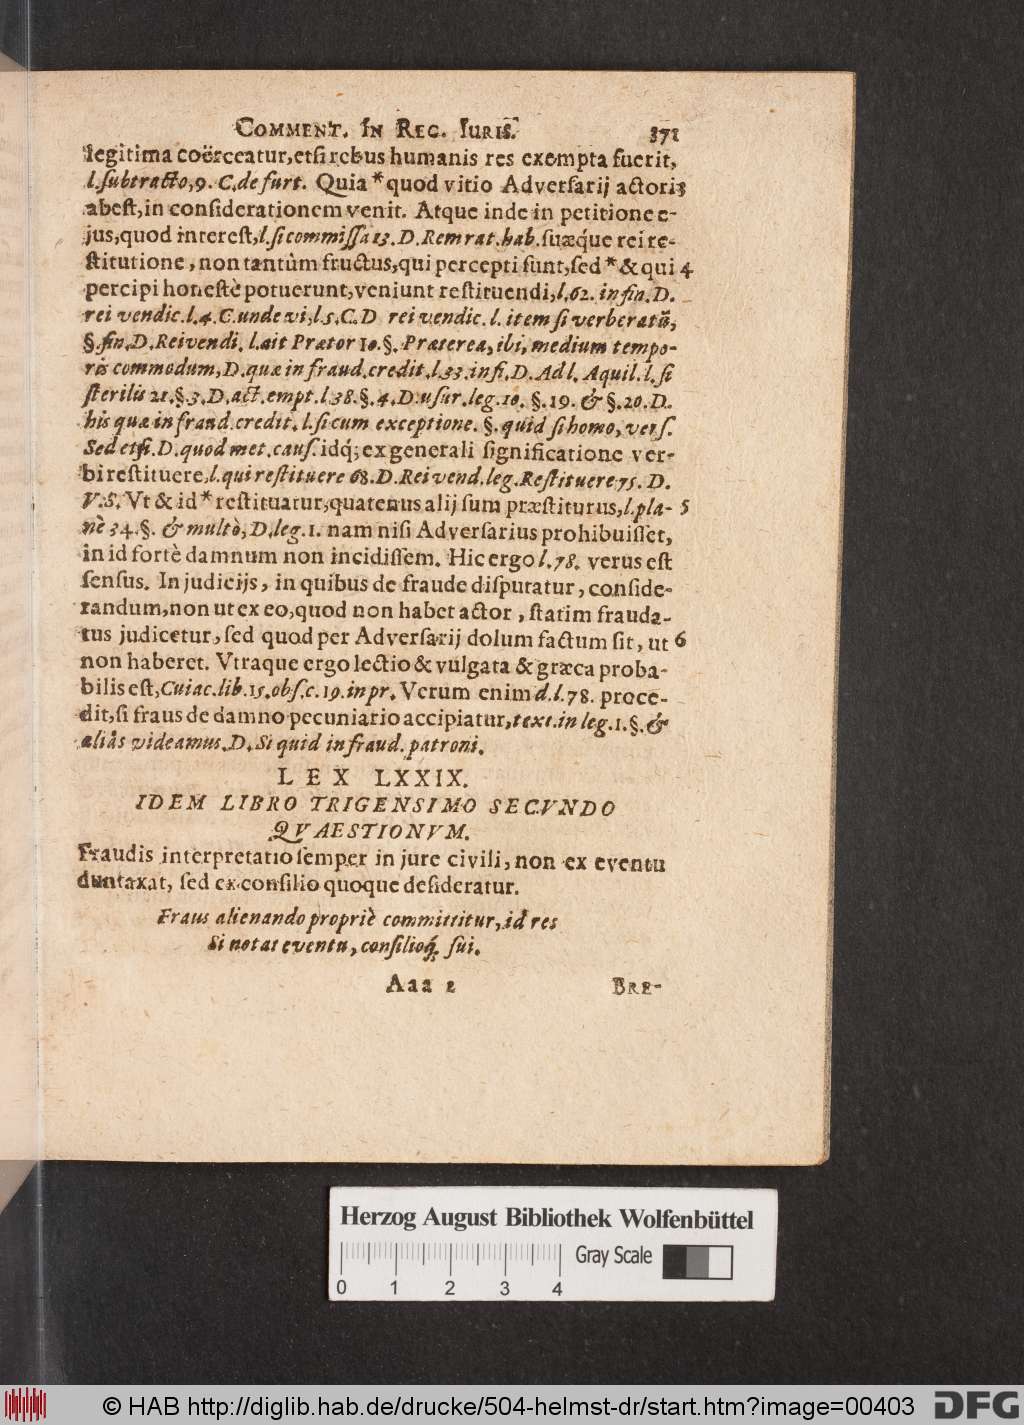 COMMENT. IN REG. IURIS. 371
legitima coërceatur, etsi rebus humanis res exempta fuerit,
l. subtracto, 9. C. de furt. Quia * quod vitio Adversarij actoris 3
abest, in considerationem venit. Atque inde in petitione e-
jus, quod interest, l. si commissa 13. D. Rem rat. hab. suæq́ue rei re-
stitutione, non tantùm fructus, qui percepti sunt, sed * & qui 4
percipi honestè potuerunt, veniunt restituendi, l. 62. in fin. D.
rei vendic. l. 4. C. unde vi, l. 5. C. D rei vendic. l. item si verberatū,
§. fin. D. Rei vendi. l. ait Prætor 10. §. Præterea, ibi, medium tempo-
ris commodum, D. quæ in fraud. credit. l. 33. in fi. D. Ad l. Aquil. l. si
sterilis 21. §. 3. D. act. empt. l. 38. §. 4. D. usur. leg. 10. §. 19. & §. 20. D.
his quæ in fraud. credit. l. si cum exceptione. §. quid si homo, vers.
Sed etsi. D. quod met. caus. idq́; ex generali significatione ver-
bi restituere, l. qui restituere 68. D. Rei vend. leg. Restituere 75. D.
V. S. Vt & id * restituatur, quatenus alij sum præstiturus, l. pla- 5
nè 34. §. & multò, D. leg. 1. nam nisi Adversarius prohibuisset,
in id fortè damnum non incidissem. Hic ergo l. 78. verus est
sensus. In judicijs, in quibus de fraude disputatur, conside-
randum, non ut ex eo, quod non habet actor, statim frauda-
tus judicetur, sed quod per Adversarij dolum factum sit, ut 6
non haberet. Vtraque ergo lectio & vulgata & græca proba-
bilis est, Cuiac. lib. 15. obs. c. 19. in pr. Verum enim d. l. 78. proce-
dit, si fraus de damno pecuniario accipiatur, text. in leg. 1. §. &
aliàs videamus. D. Si quid in fraud. patroni.
LEX LXXIX.
IDEM LIBRO TRIGENSIMO SECVNDO
QVAESTIONVM.
Fraudis interpretatio semper in jure civili, non ex eventu
duntaxat, sed ex consilio quoque desideratur.
Fraus alienando propriè committitur, id res
Si notat eventu, consilioq́; sui.
Aaa 2 BRE-
Herzog August Bibliothek Wolfenbüttel
Gray Scale
0 1 2 3 4
© HAB http://diglib.hab.de/drucke/504-helmst-dr/start.htm?image=00403 DFG